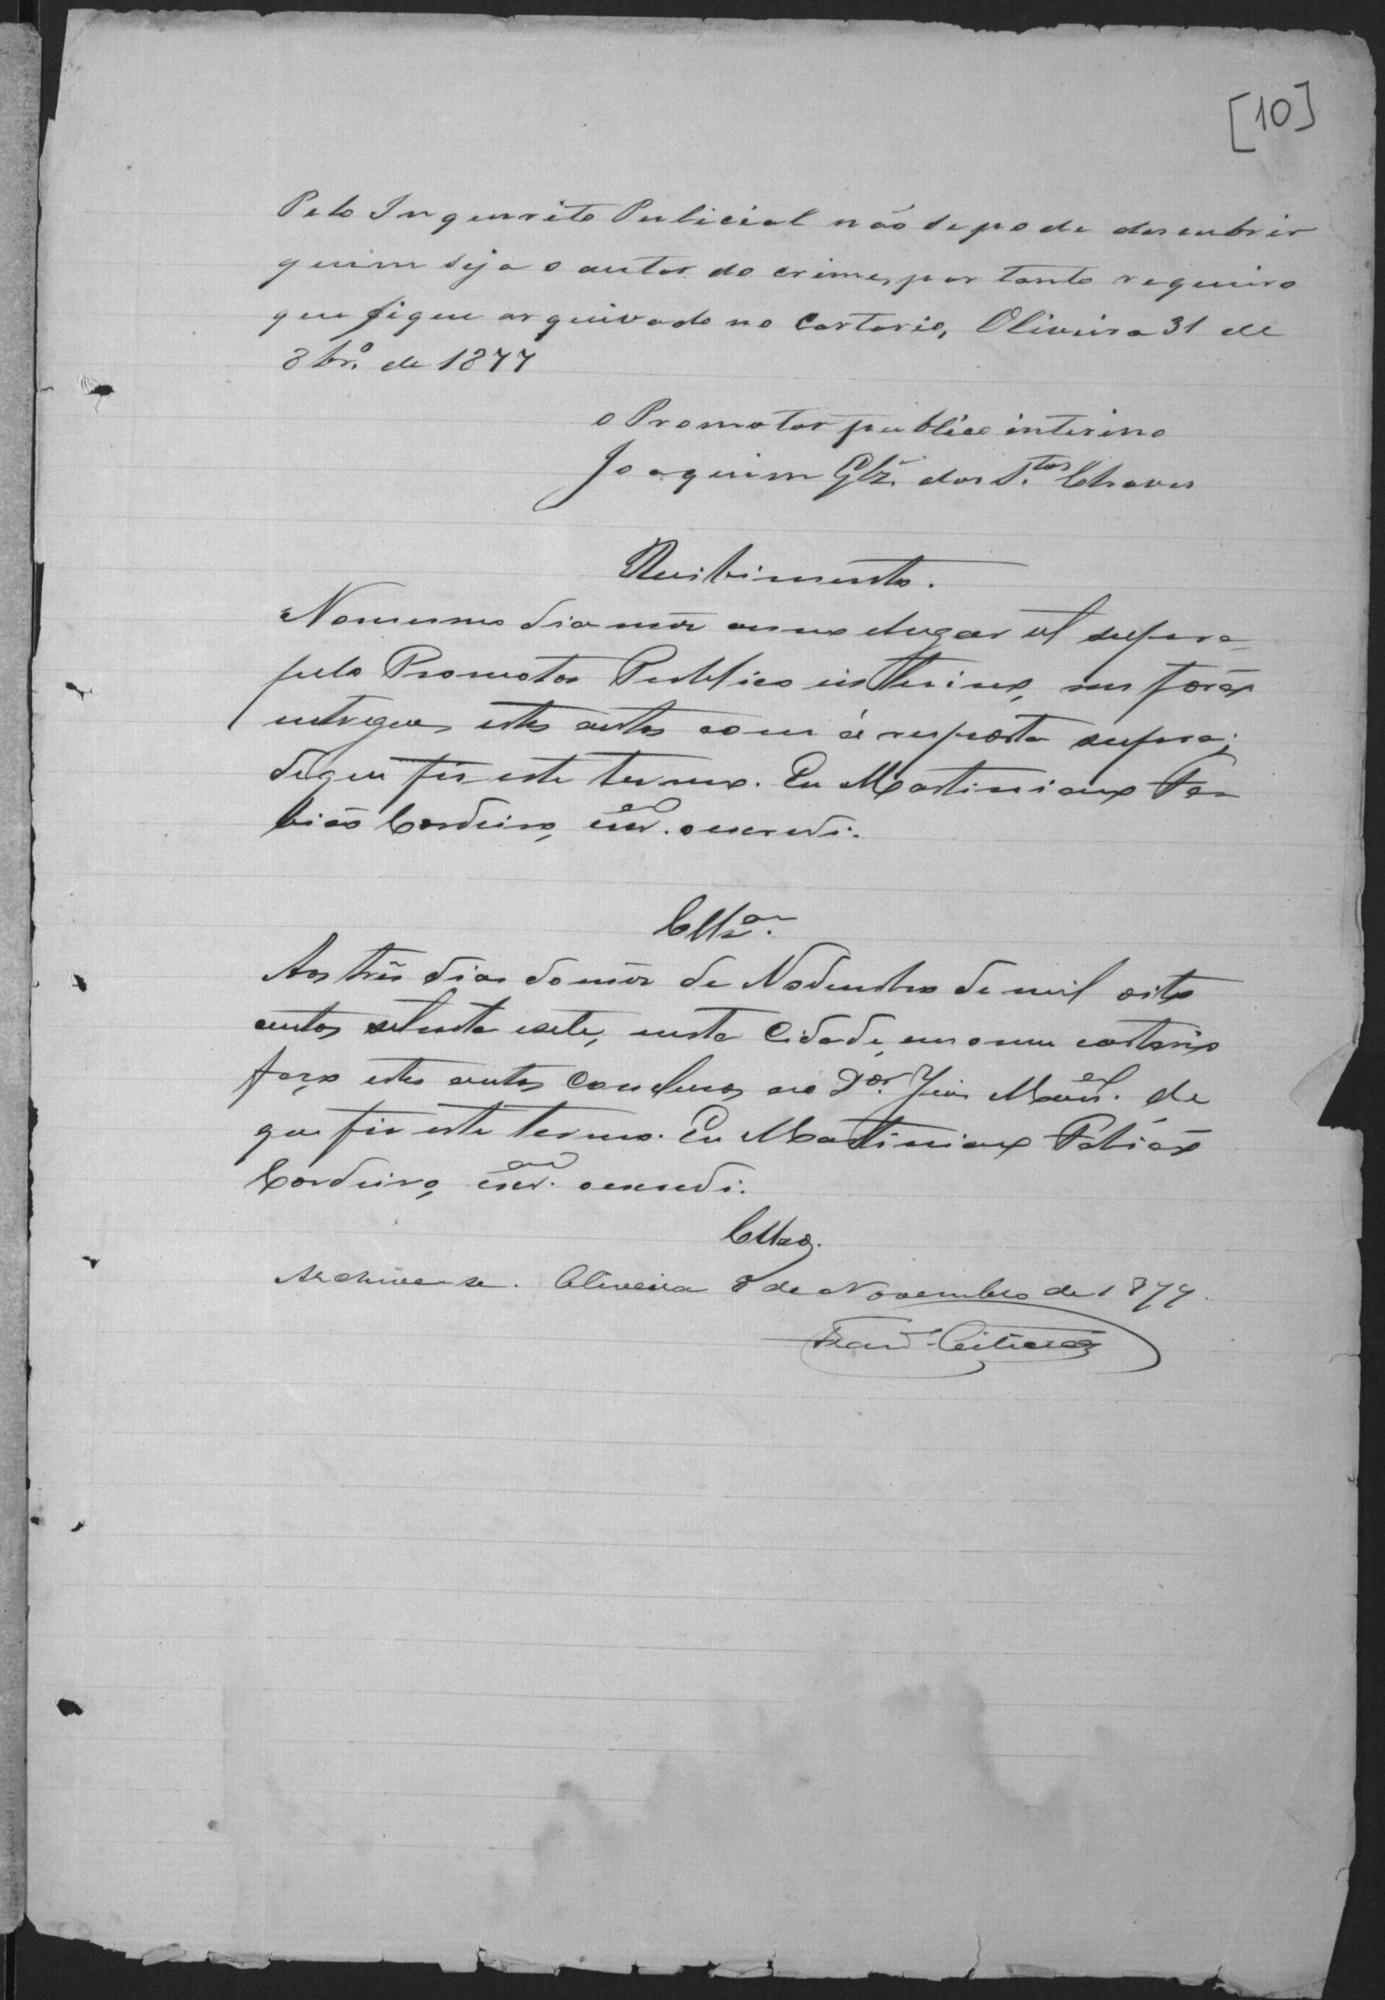 [10]
Pelo Inquerito Pulicial não se pode descubrir
quem seja o autor do crime, por tanto requeiro
que fique arquivado no Cartorio, Oliveira 31 de
8br.º de 1877
o Promotor publico interino
Joaquim Glz. dos S.tos Chaves
Recibimento.
No mesmo dia mez anno elugar ut supra
pelo Promotor Publico interino, me forão
entregues estes autos com a resposta supra;
de que fiz este termo. Eu Martiniano Fa-
bião Cordeiro, escr.am o escrevi.
Cllz.am
Aos três dias do mez de Novembro de mil oito
centos setenta esete, nesta Cidade, em o meu cartorio
faço estes autos conclusos ao D.or Juis Mun.al de
que fiz este termo. Eu Martiniano Fabião
Cordeiro, escr.am o escrevi.
Cllzos.
Archive-se. Oliveira 8 de Novembro de 1877.